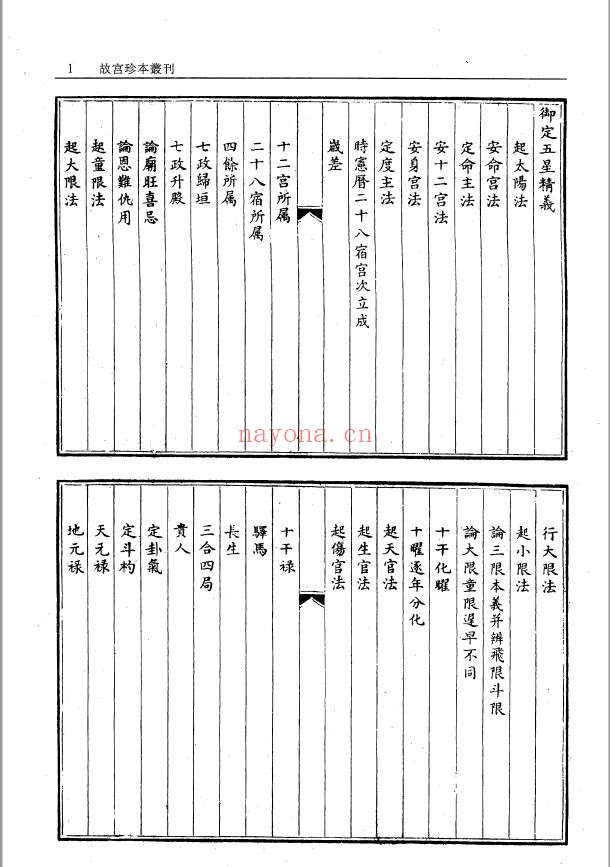 1 故宫珍本叢刊
御定五星精義
起太陽法
安命宫法
定命主法
安十二宫法
安身宫法
定度主法
時憲曆二十八宿宫次立成
歲差
十二宫所属
二十八宿所属
四餘所属
七政歸垣
七政升殿
論廟旺喜忌
論恩難仇用
起童限法
起大限法
行大限法
起小限法
論三限本義并辨飛限斗限
論大限童限遲早不同
十干化曜
十曜逐年分化
起天官法
起生官法
起傷官法
十干禄
驛馬
長生
三合四局
貴人
定卦氣
定斗杓
天元禄
地元禄
nayona.cn